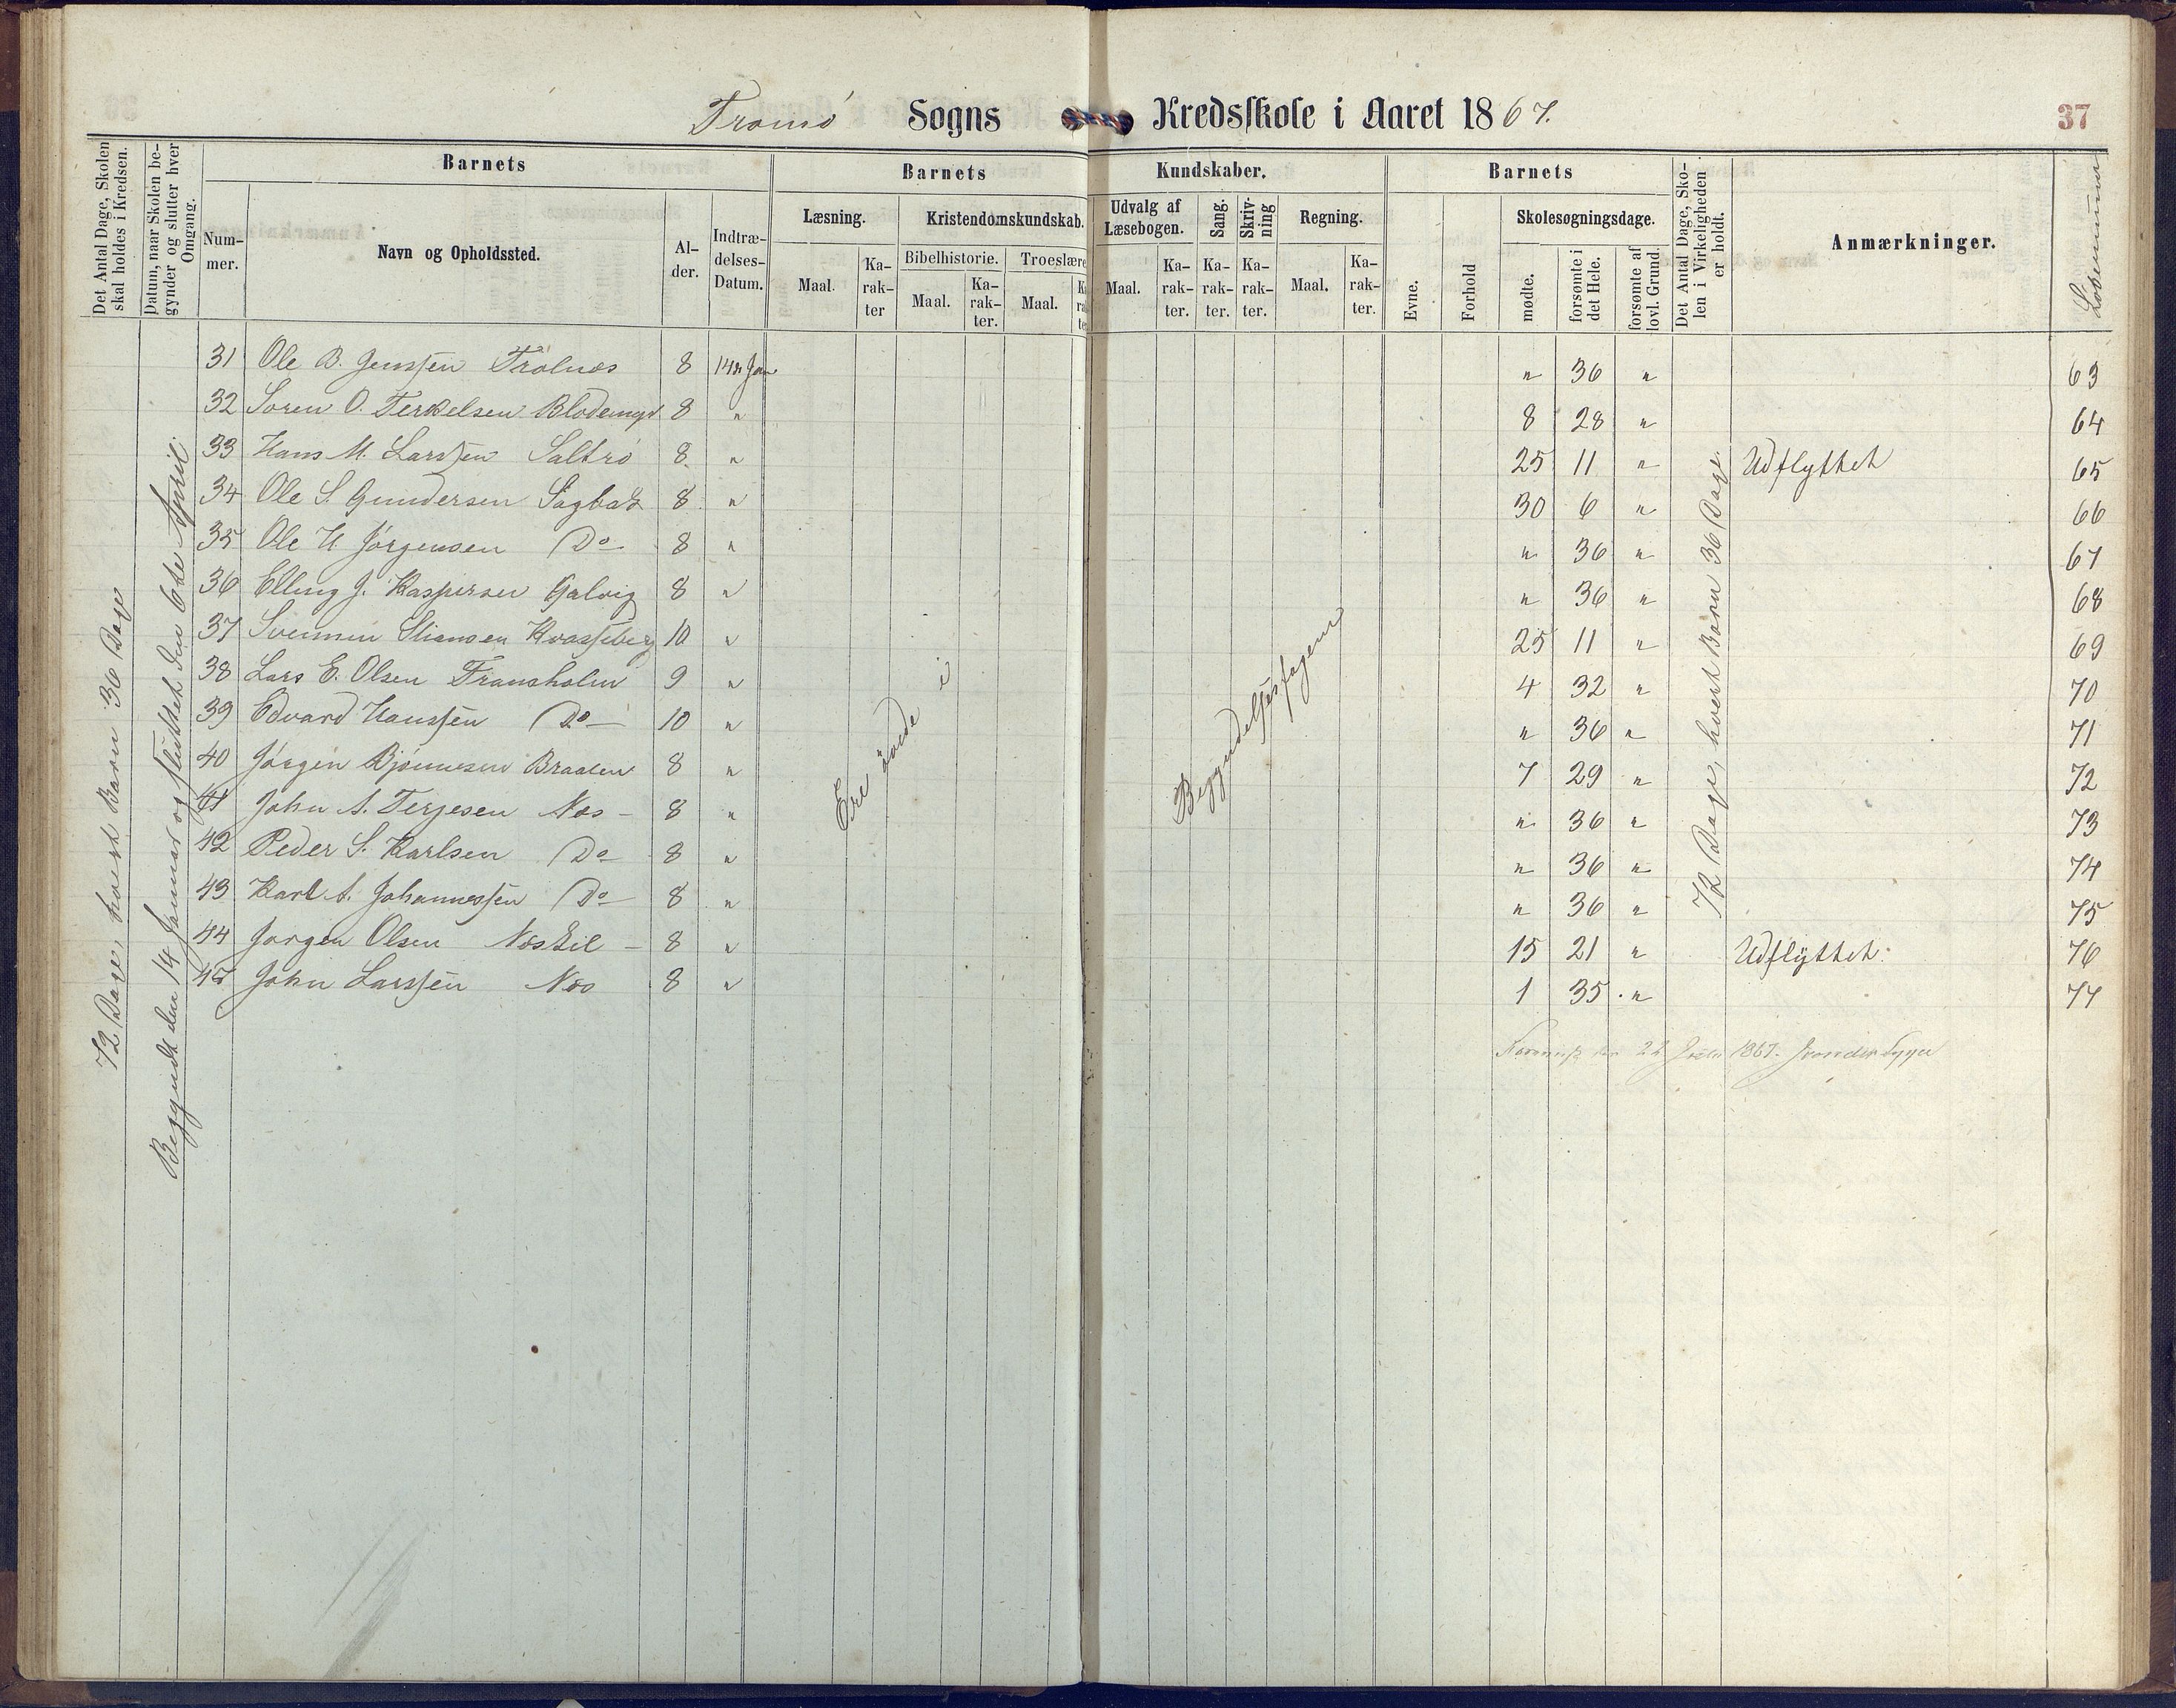 Tromø Sogns Kredsskole i Aaret 1867.
37
Det Antal Dage, Skolen skal holdes i Kredsen.
Datum, naar Skolen begynder og slutter hver Omgang.
Barnets
Barnets
Kundskaber.
Barnets
Nummer.
Navn og Opholdssted.
Alder.
Indtrædelses-Datum.
Læsning.
Kristendomskundskab.
Udvalg af Læsebogen.
Sang.
Skrivning
Regning.
Evne.
Forhold
Skolesøgningsdage.
Det Antal Dage, Skolen i Virkeligheden er holdt.
Anmærkninger.
Løbenummer
Bibelhistorie.
Troeslære
Maal.
Karakter
Maal.
Karakter.
Maal.
Maal.
Karakter.
Karakter.
Karakter.
Maal.
Karakter.
mødte.
forsømte i det Hele.
forsømte af lovl. Grund.
72 Dage, hvert Barn 36 Dage
Begyndt den 14 Januar og sluttet den 6te April.
31 Ole B. Jenssen Trolnæs 8 14de Jan " 36 " 63
32 Søren O. Terkelsen Blødemyr 8 " 8 28 " 64
33 Hans M. Larssen Saltrø 8 " 25 11 " Udflyttet 65
34 Ole S. Gundersen Sagbak 8 " 30 6 " 66
35 Ole H Jørgensen Do 8 " " 36 " 67
36 Elling J. Kaspersen Galvig 8 " " 36 " 68
37 Svennin Stiansen Kvasseberg 10 " 25 11 " 69
38 Lars E. Olsen Fransholm 9 " 4 32 " 70
39 Edvard Hanssen Do 10 " " 36 " 71
40 Jørgen Bjønnesen Braaten 8 " 7 29 " 72
41 John A. Terjesen Næs 8 " " 36 " 73
42 Peder S. Karlsen Do 8 " " 36 " 74
43 Karl A. Johannessen Do 8 " " 36 " 75
44 Jørgen Olsen Næskil 8 " 15 21 " Udflyttet. 76
45 John Larssen Næs 8 " 1 35 " 77
Ere øvede i Begyndelsesfagene
72 Dage, hvert Barn 36 Dage.
22 1867.